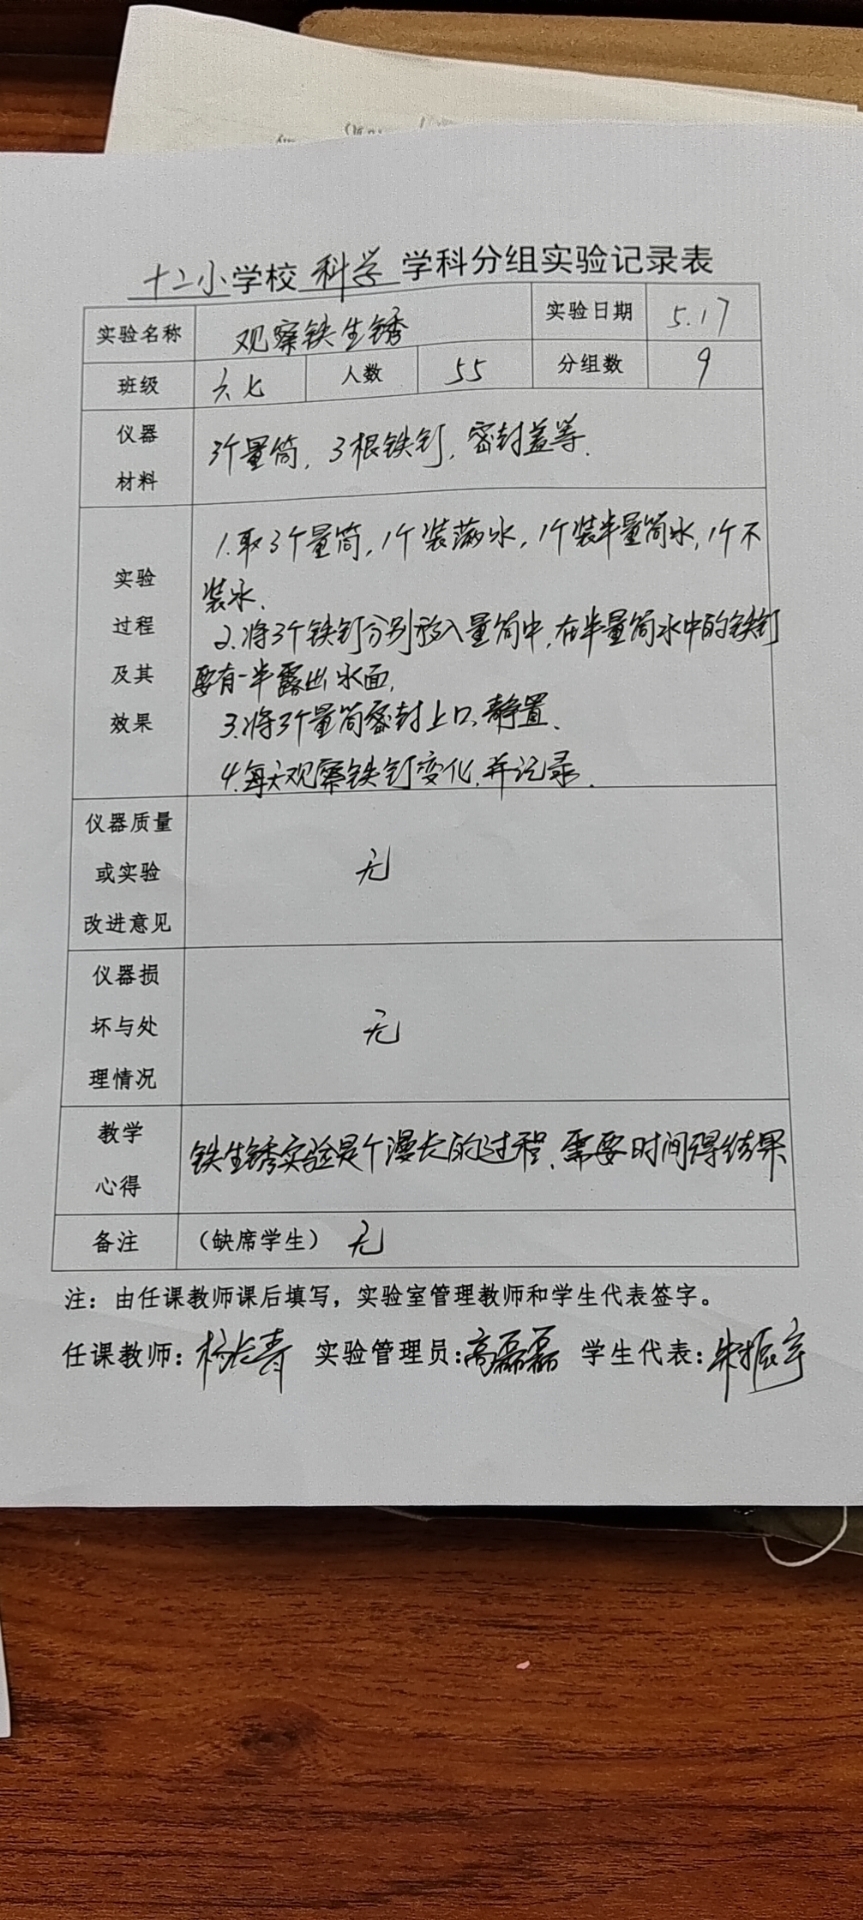 十二小学校 科学 学科分组实验记录表
实验名称 观察铁生锈 实验日期 5.17
班级 六七 人数 55 分组数 9
仪器
材料
3个量筒，3根铁钉，密封盖等.
实验
过程
及其
效果
1.取3个量筒，1个装满水，1个装半量筒水，1个不
装水.
2.将3个铁钉分别放入量筒中，在半量筒水中的铁钉
要有一半露出水面，
3.将3个量筒密封上口、静置、
4.每天观察铁钉变化，并记录.
仪器质量
或实验
改进意见
无
仪器损
坏与处
理情况
无
教学
心得
铁生锈实验是个漫长的过程、需要时间得结果
备注 （缺席学生） 无
注：由任课教师课后填写，实验室管理教师和学生代表签字。
任课教师：杨长青 实验管理员：高磊磊 学生代表：朱振宇